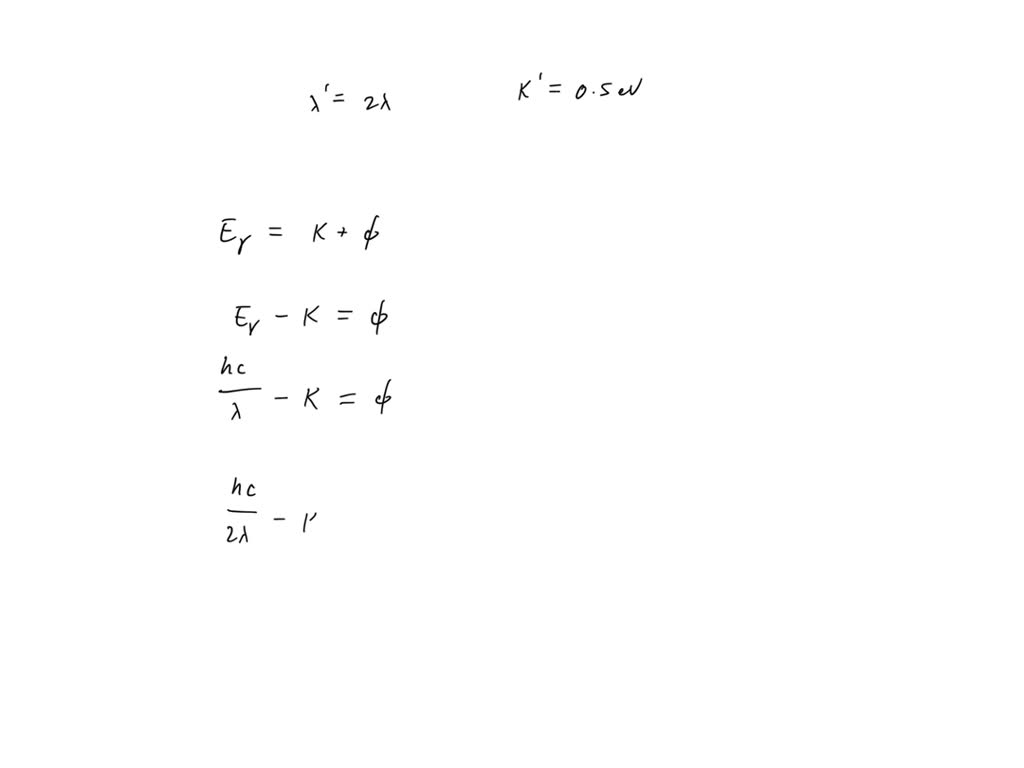 λ' = 2λ K' = 0.5 eV
E_γ = K + ϕ
E_γ - K = ϕ
hc/λ - K = ϕ
hc/2λ -